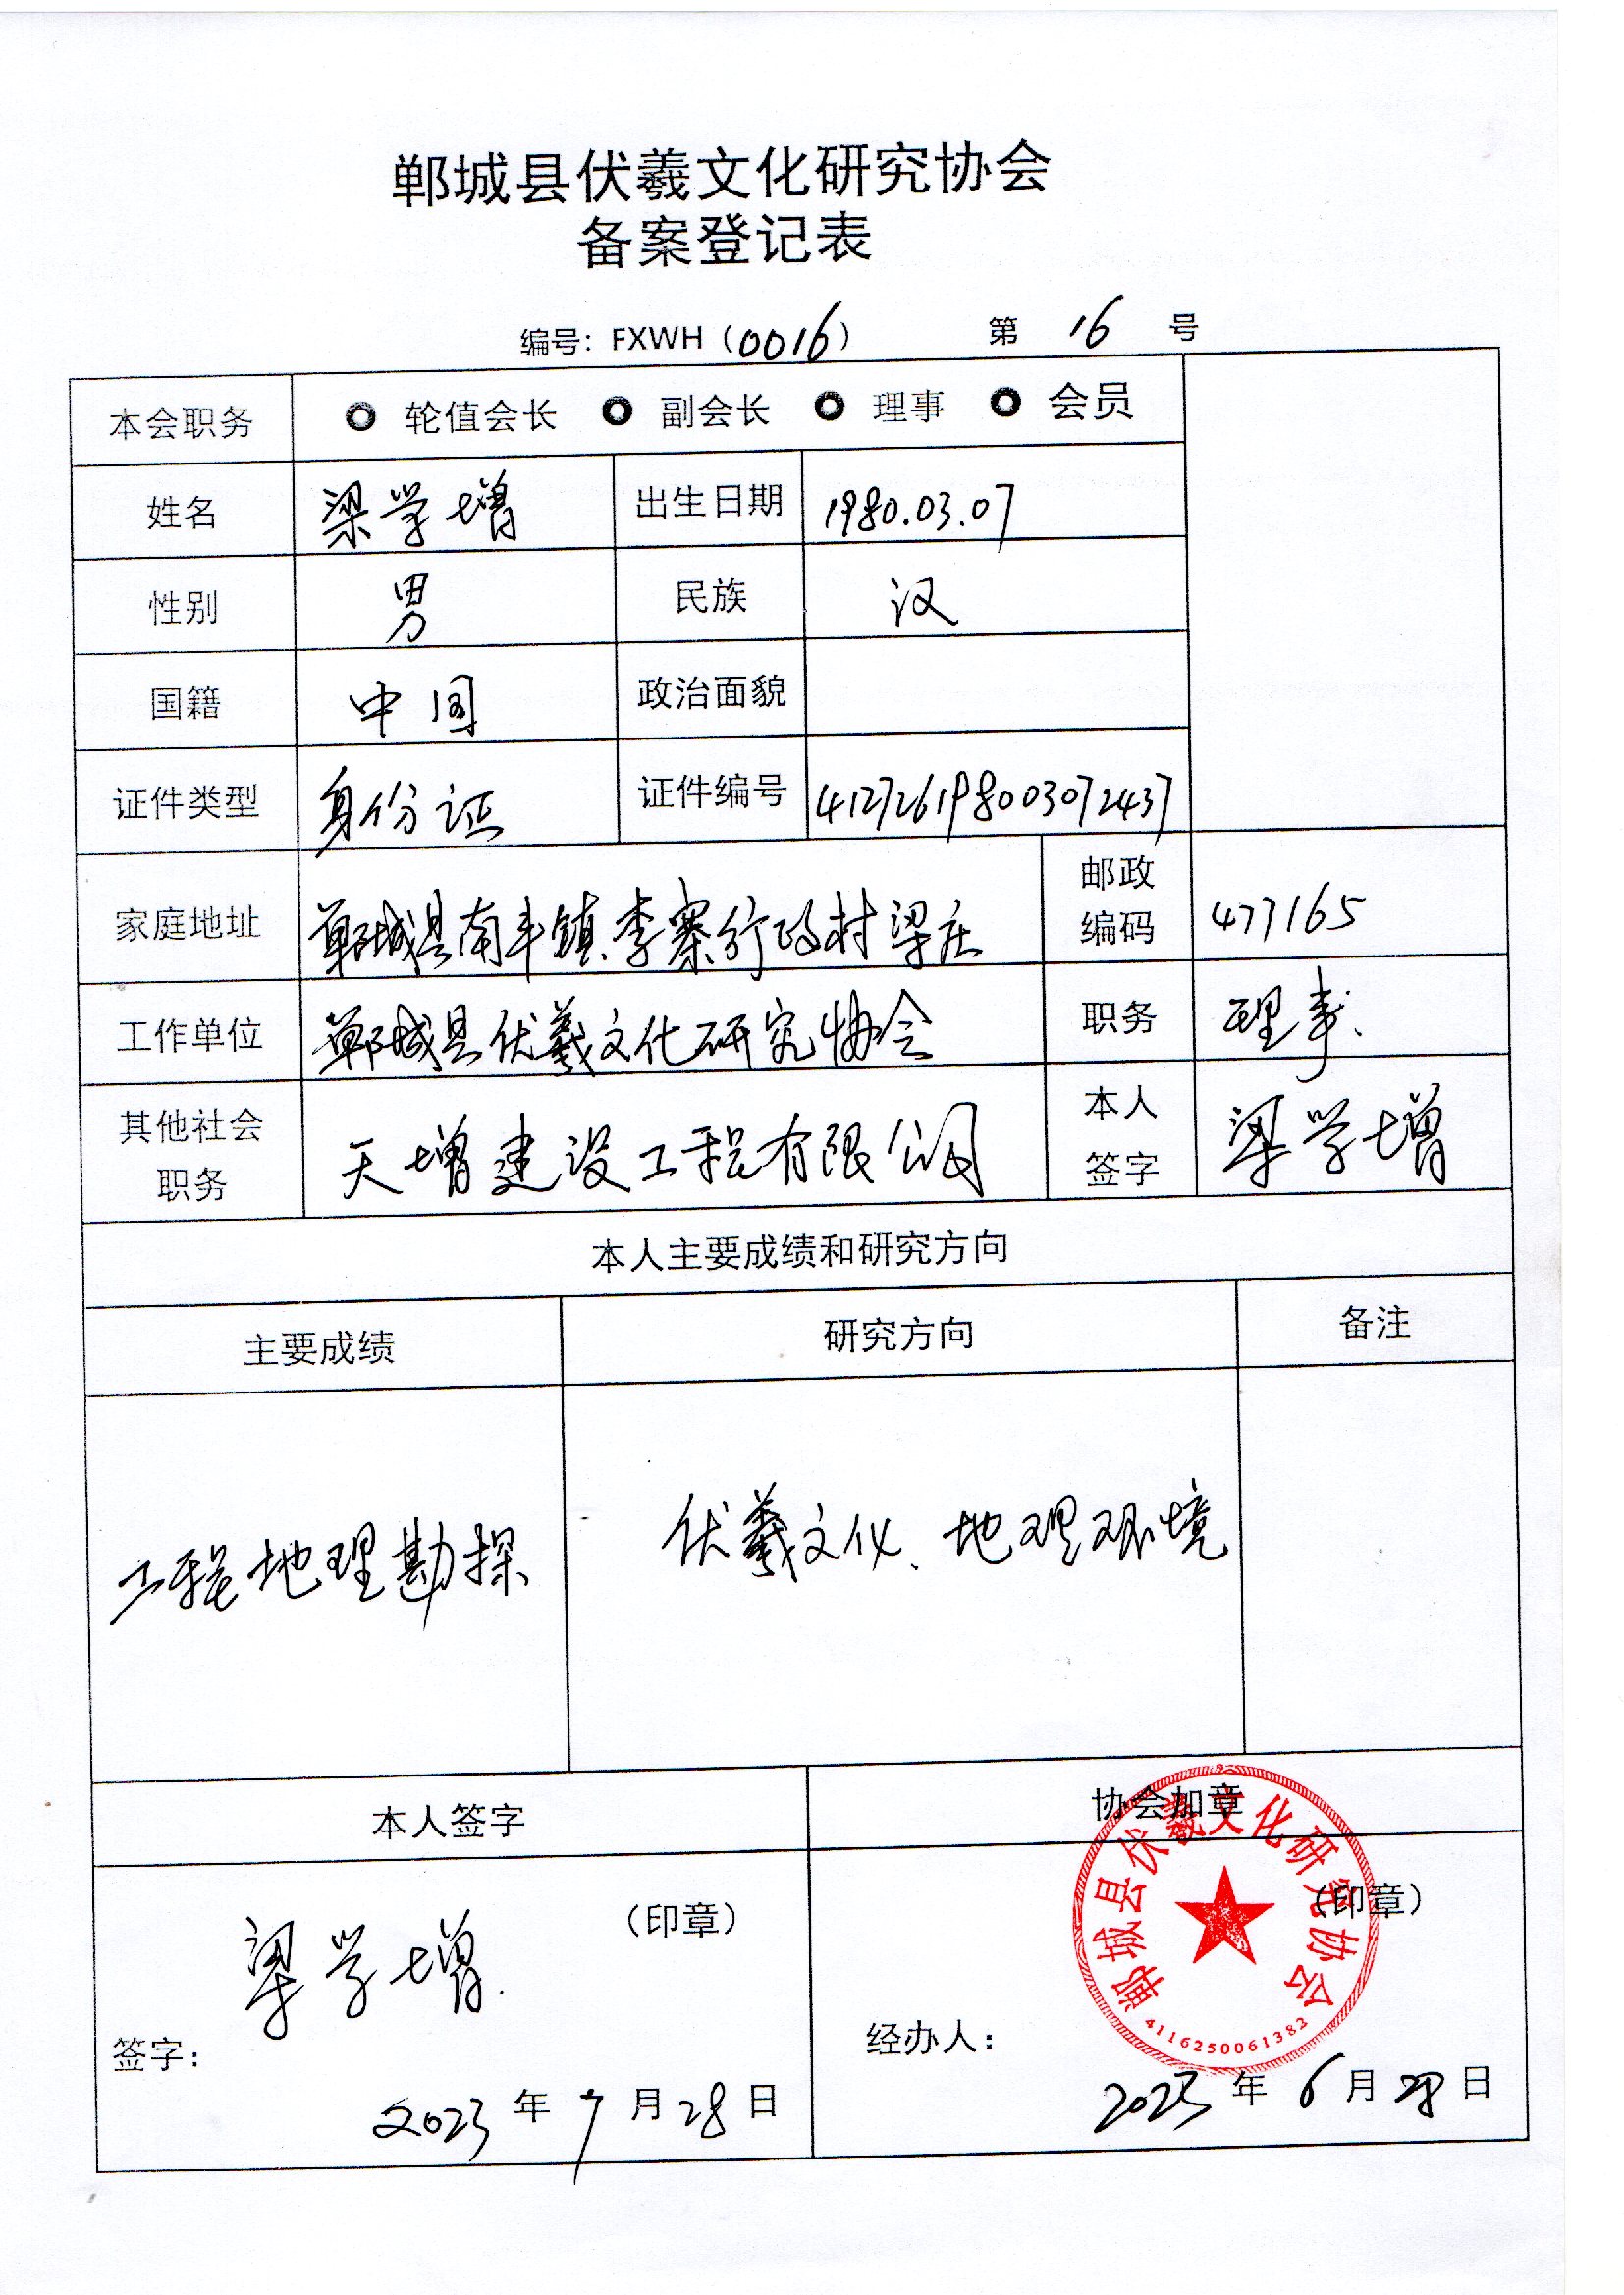 郸城县伏羲文化研究协会
备案登记表
编号：FXWH（0016） 第 16 号
本会职务 轮值会长 副会长 理事 会员
姓名 梁学增 出生日期 1980.03.07
性别 男 民族 汉
国籍 中国 政治面貌
证件类型 身份证 证件编号 412726198003072437
家庭地址 郸城县南丰镇李寨行政村梁庄 邮政编码 477165
工作单位 郸城县伏羲文化研究协会 职务 理事
其他社会职务 天增建设工程有限公司 本人签字 梁学增
本人主要成绩和研究方向
主要成绩 研究方向 备注
工程地理勘探 伏羲文化、地理环境
本人签字 协会加章
（印章） （印章）
梁学增
郸城县伏羲文化研究协会
4116250061382
签字： 经办人：
2023 年 7 月 28 日 2023 年 6 月 日